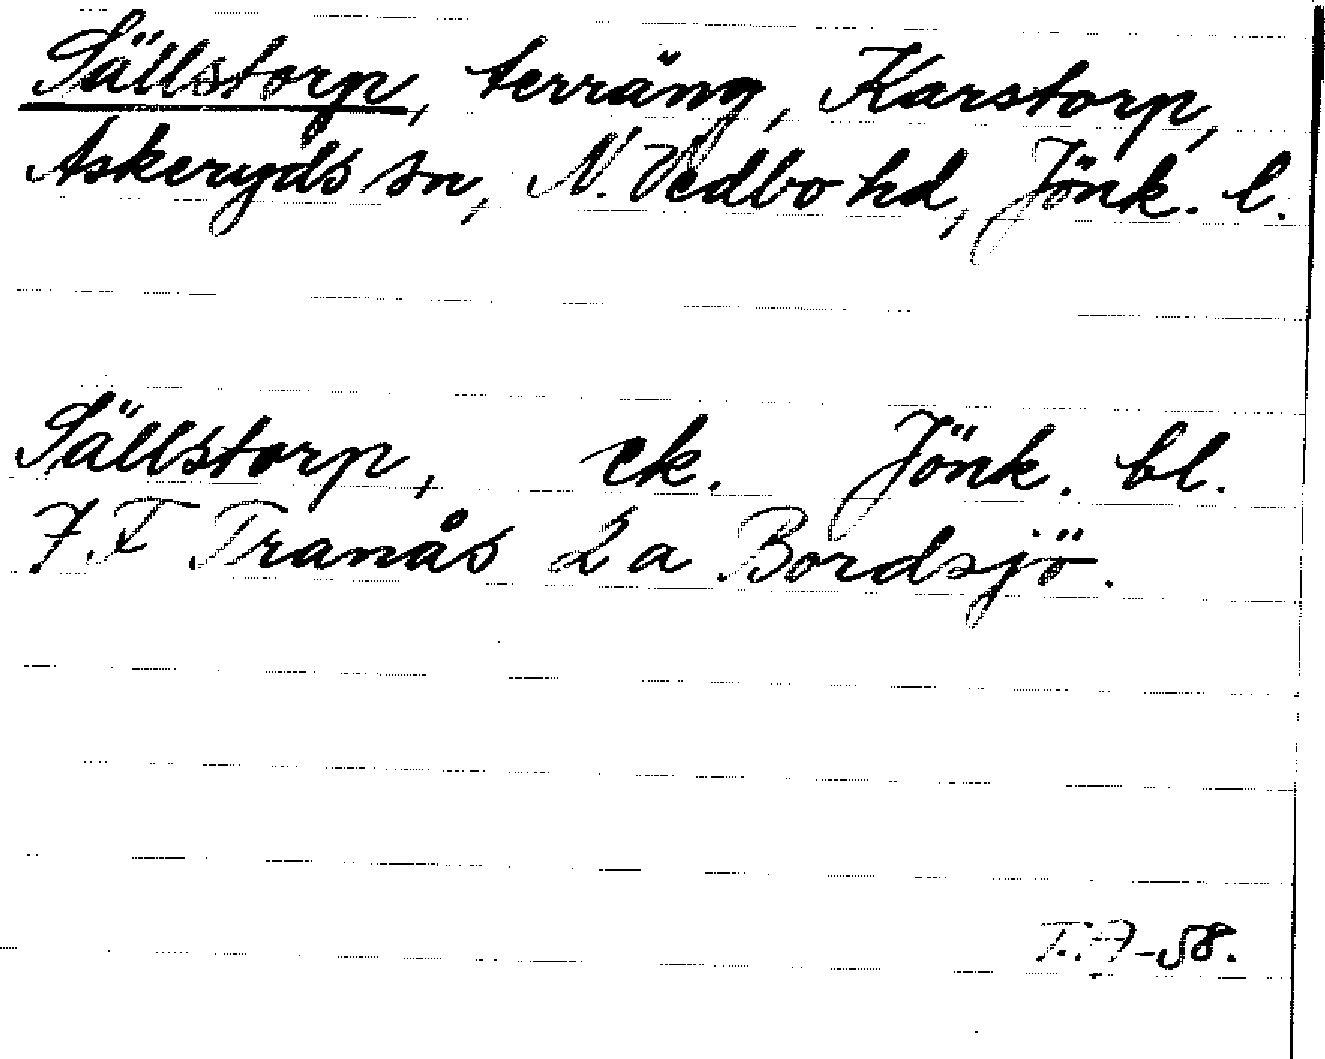 Sällstorp, terräng, Karstorp,
Askeryds sn, N. Vedbo hd, Jönk. l.
Sällstorp, ek. Jönk. bl.
7. F Tranås 2 a Bordsjö.
-58.